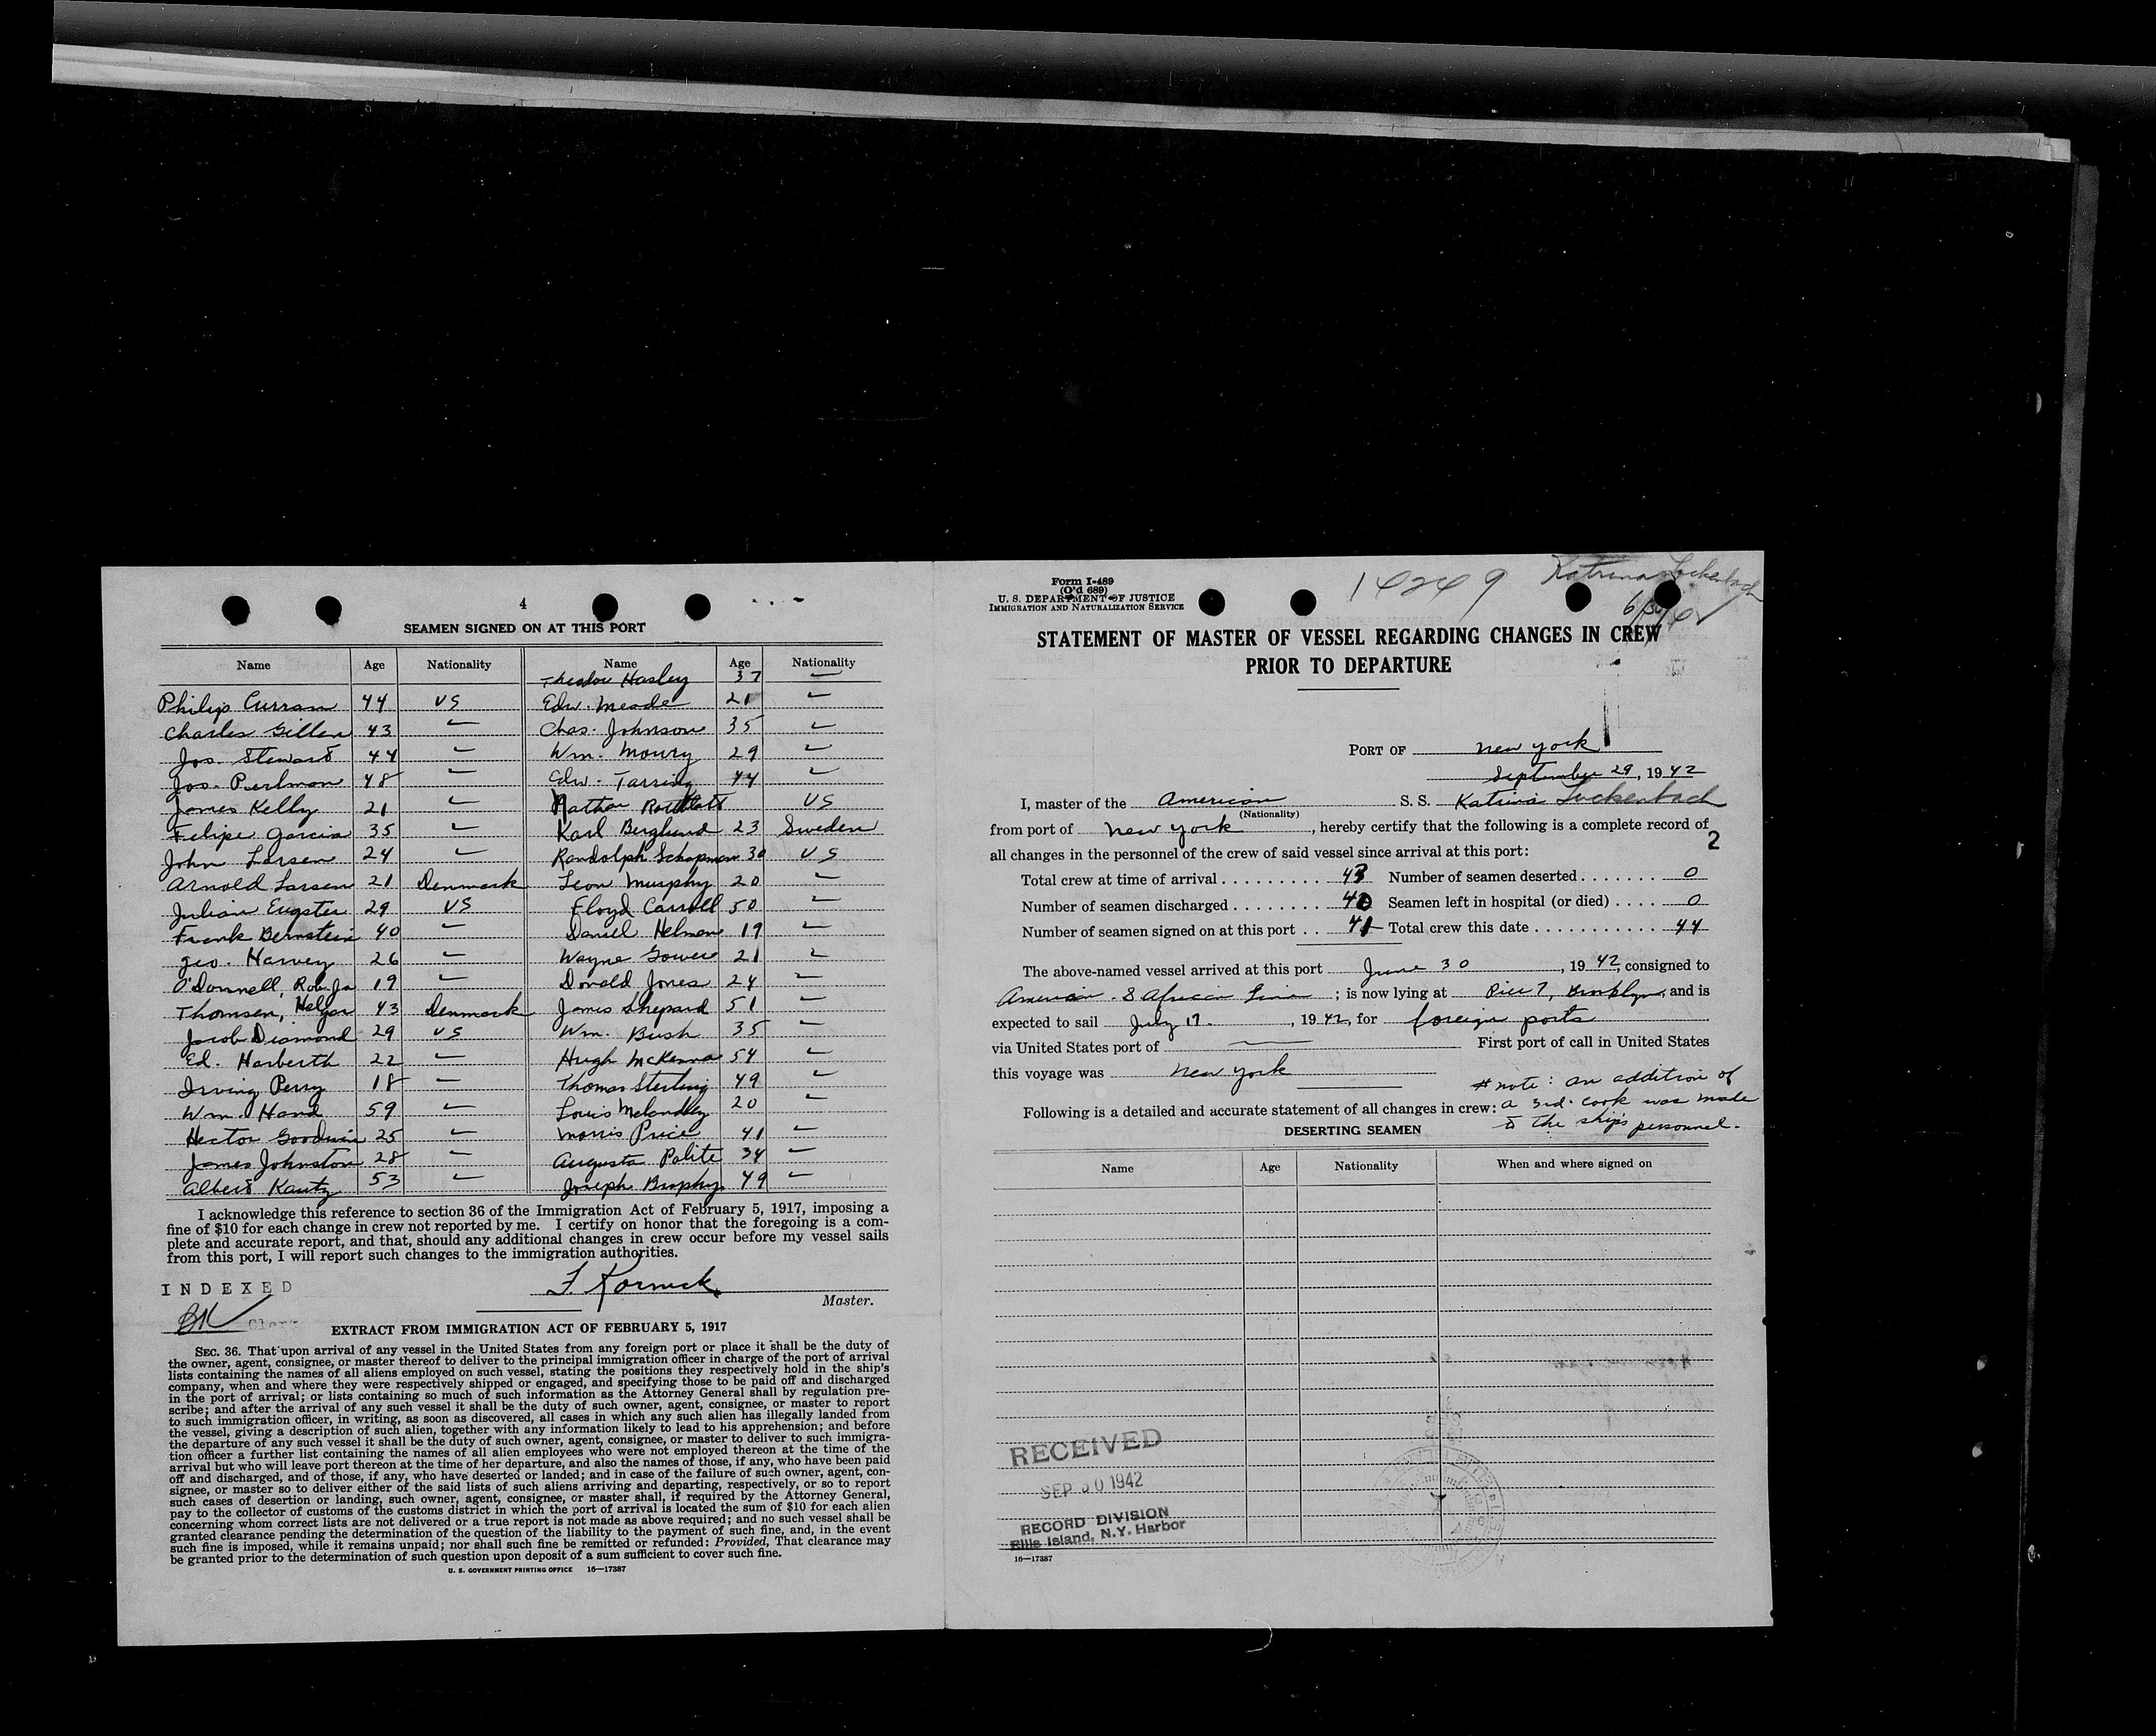 4
SEAMEN SIGNED ON AT THIS PORT
Name Age Nationality Name Age Nationality
Theodor Hasley 37 "
Philip Curran 44 US Edw. Meade 21 "
Charles Gillen 43 " Chas. Johnson 35 "
Jos. Steward 44 " Wm. Moury 29 "
Jos. Perlman 48 " Edw. Tarring 44 "
James Kelly 21 " Nathan US
Felipe Garcia 35 " Karl Berglund 23 Sweden
John Larsen 24 " Randolph Schapman 30 US
Arnold Larsen 21 Denmark Leon Murphy 20 "
Julian Eugster 29 US Floyd Carroll 50 "
Frank Bernstein 40 " Daniel Helman 19 "
Geo. Harvey 26 " Wayne Gowers 21 "
O'Donnell, Rob. Jr 19 " Donald Jones 24 "
Thomsen, Helgar 43 Denmark James Shepard 51 "
Jacob Diamond 29 US Wm. Bush 35 "
Ed. Harberth 22 " Hugh McKenna 54 "
Irving Perry 18 " Thomas Sterling 49 "
Wm. Hand 59 " Louis 20 "
Hector Goodwin 25 " Morris Price 41 "
James Johnston 28 " Augusta Polite 34 "
Albert Kautz 53 " Joseph Brophy 49 "
I acknowledge this reference to section 36 of the Immigration Act of February 5, 1917, imposing a
fine of $10 for each change in crew not reported by me. I certify on honor that the foregoing is a com-
plete and accurate report, and that, should any additional changes in crew occur before my vessel sails
from this port, I will report such changes to the immigration authorities.
INDEXED
F. Kornick
Master.
BK Clerk
EXTRACT FROM IMMIGRATION ACT OF FEBRUARY 5, 1917
SEC. 36. That upon arrival of any vessel in the United States from any foreign port or place it shall be the duty of
the owner, agent, consignee, or master thereof to deliver to the principal immigration officer in charge of the port of arrival
lists containing the names of all aliens employed on such vessel, stating the positions they respectively hold in the ship's
company, when and where they were respectively shipped or engaged, and specifying those to be paid off and discharged
in the port of arrival; or lists containing so much of such information as the Attorney General shall by regulation pre-
scribe; and after the arrival of any such vessel it shall be the duty of such owner, agent, consignee, or master to report
to such immigration officer, in writing, as soon as discovered, all cases in which any such alien has illegally landed from
the vessel, giving a description of such alien, together with any information likely to lead to his apprehension; and before
the departure of any such vessel it shall be the duty of such owner, agent, consignee, or master to deliver to such immigra-
tion officer a further list containing the names of all alien employees who were not employed thereon at the time of the
arrival but who will leave port thereon at the time of her departure, and also the names of those, if any, who have been paid
off and discharged, and of those, if any, who have deserted or landed; and in case of the failure of such owner, agent, con-
signee, or master so to deliver either of the said lists of such aliens arriving and departing, respectively, or so to report
such cases of desertion or landing, such owner, agent, consignee, or master shall, if required by the Attorney General,
pay to the collector of customs of the customs district in which the port of arrival is located the sum of $10 for each alien
concerning whom correct lists are not delivered or a true report is not made as above required; and no such vessel shall be
granted clearance pending the determination of the question of the liability to the payment of such fine, and, in the event
such fine is imposed, while it remains unpaid; nor shall such fine be remitted or refunded: Provided, That clearance may
be granted prior to the determination of such question upon deposit of a sum sufficient to cover such fine.
U. S. GOVERNMENT PRINTING OFFICE 16—17387
Form I-489
(O'd 689)
U. S. DEPARTMENT OF JUSTICE
IMMIGRATION AND NATURALIZATION SERVICE
14249
Katrina Luckenbach
6/30/42
STATEMENT OF MASTER OF VESSEL REGARDING CHANGES IN CREW
PRIOR TO DEPARTURE
PORT OF New York
September 29, 1942
I, master of the American S. S. Katrina Luckenbach
(Nationality)
from port of New York, hereby certify that the following is a complete record of
all changes in the personnel of the crew of said vessel since arrival at this port: 2
Total crew at time of arrival 43 Number of seamen deserted 0
Number of seamen discharged 40 Seamen left in hospital (or died) 0
Number of seamen signed on at this port 41 Total crew this date 44
The above-named vessel arrived at this port June 30, 1942, consigned to
American - S African Line; is now lying at Pier 7, Brooklyn, and is
expected to sail July 17., 1942, for foreign ports
via United States port of — First port of call in United States
this voyage was New York
# note: an addition of
Following is a detailed and accurate statement of all changes in crew: a 3rd. cook was made
to the ship's personnel.
DESERTING SEAMEN
Name Age Nationality When and where signed on
RECEIVED
SEP 30 1942
RECORD DIVISION
Ellis Island, N.Y. Harbor
16—17387